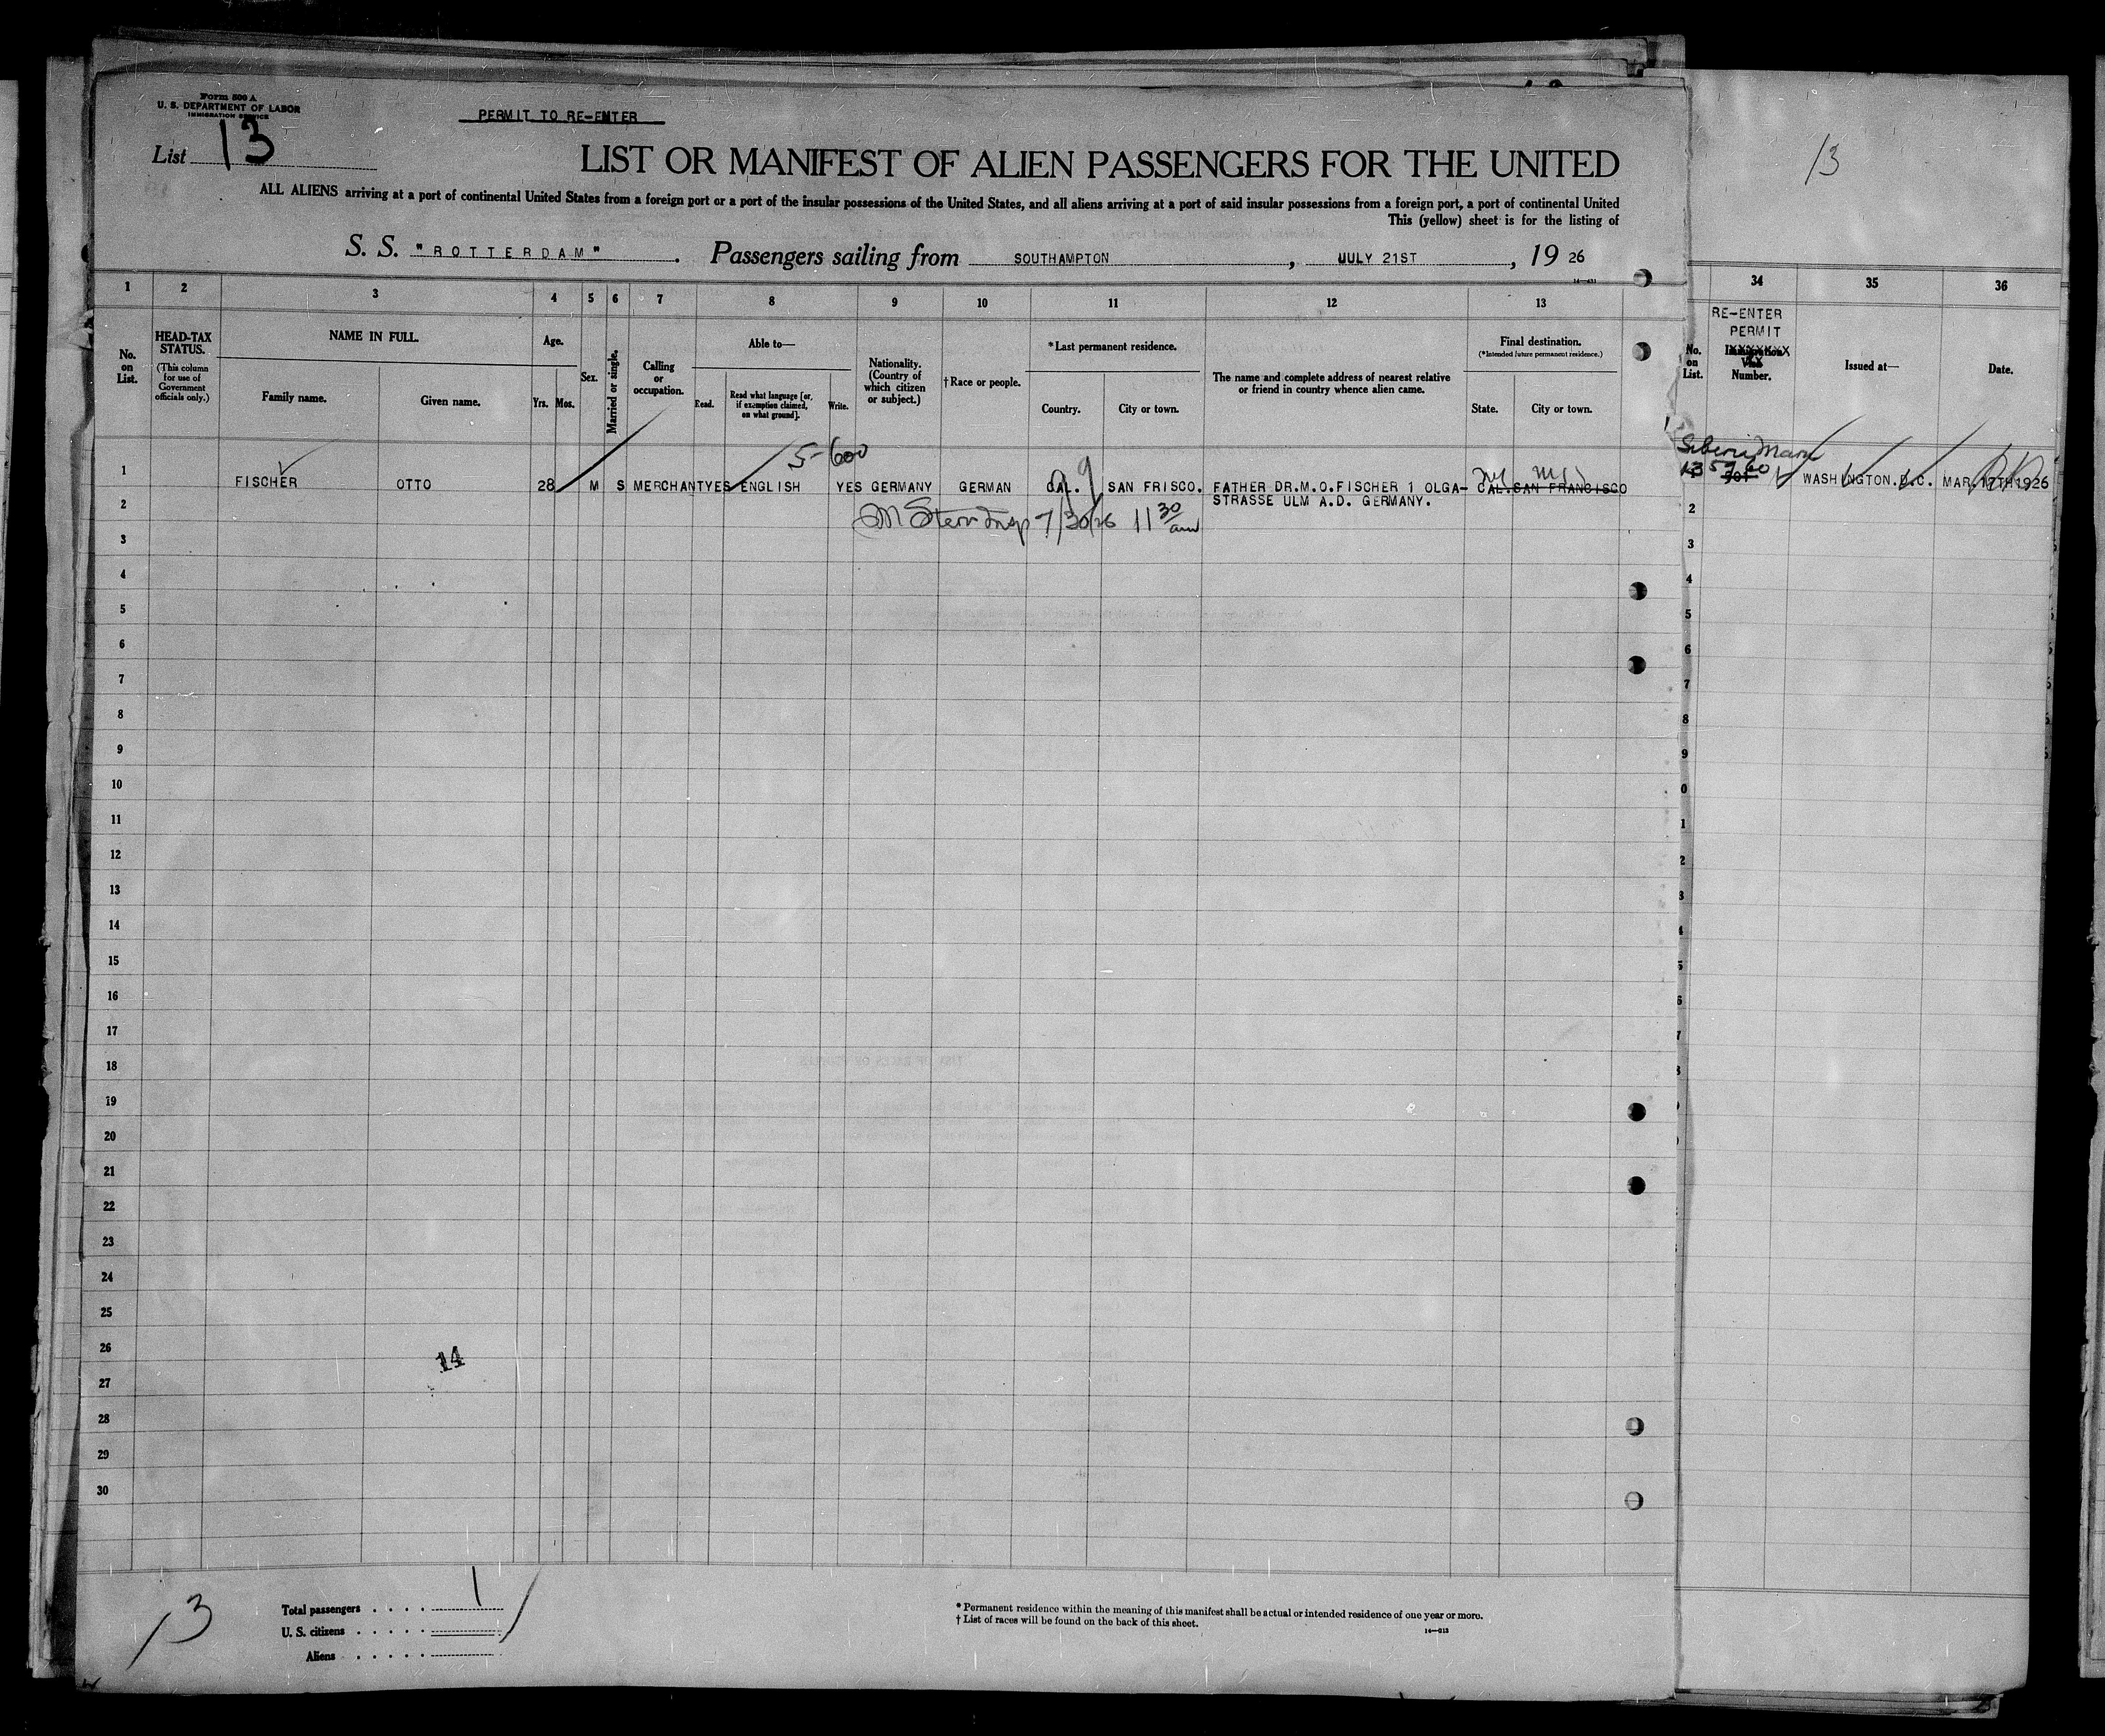 Form 500 A
U. S. DEPARTMENT OF LABOR
IMMIGRATION SERVICE
PERMIT TO RE-ENTER
List 13
13
LIST OR MANIFEST OF ALIEN PASSENGERS FOR THE UNITED
ALL ALIENS arriving at a port of continental United States from a foreign port or a port of the insular possessions of the United States, and all aliens arriving at a port of said insular possessions from a foreign port, a port of continental United
This (yellow) sheet is for the listing of
S. S. "ROTTERDAM". Passengers sailing from SOUTHAMPTON, JULY 21ST, 19 26
1 2 3 4 5 6 7 8 9 10 11 12 13 34 35 36
No. on List.
HEAD-TAX STATUS.
(This column for use of Government officials only.)
NAME IN FULL.
Family name. Given name.
Age.
Yrs. Mos.
Sex.
Married or single.
Calling or occupation.
Able to—
Read. Read what language [or, if exemption claimed, on what ground]. Write.
Nationality. (Country of which citizen or subject.)
†Race or people.
*Last permanent residence.
Country. City or town.
The name and complete address of nearest relative or friend in country whence alien came.
Final destination.
(*Intended future permanent residence.)
State. City or town.
No. on List.
RE-ENTER
PERMIT
Immigration
Number.
Issued at—
Date.
5-600
1 FISCHER OTTO 28 M S MERCHANT YES ENGLISH YES GERMANY GERMAN CAL. SAN FRISCO. FATHER DR.M.O.FISCHER 1 OLGA- CAL. SAN FRANCISCO WASHINGTON.D.C. MAR.17TH1926
STRASSE ULM A.D. GERMANY.
2 M Stern Insp 7/30/26 11 30 am 2
3 3
4 4
5 5
6 6
7 7
8 8
9 9
10 0
11 1
12 2
13 3
14 4
15 5
16 6
17 7
18 8
19
20
21
22
23
24
25
26
14
27
28
29
30
13
Total passengers . . . . 1
U. S. citizens . . . . .
Aliens . . . . .
* Permanent residence within the meaning of this manifest shall be actual or intended residence of one year or more.
† List of races will be found on the back of this sheet.